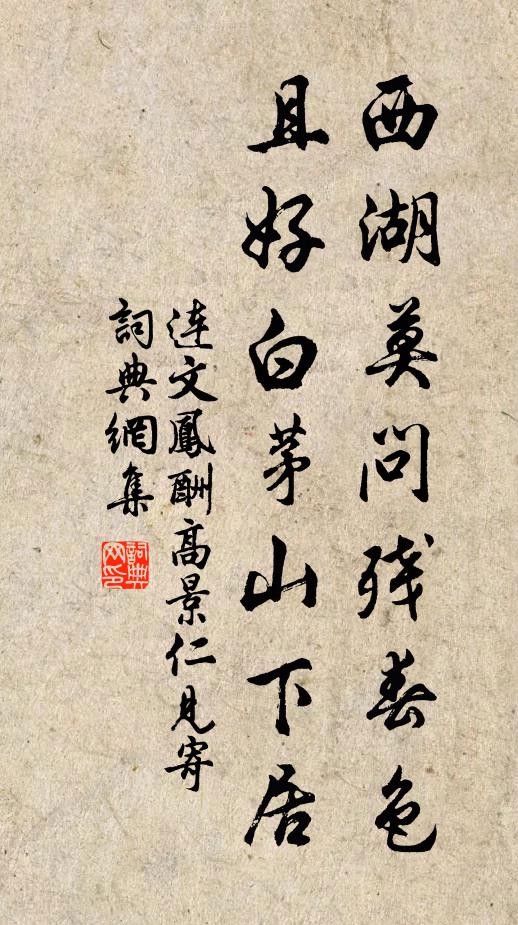 西湖莫问残春色
且好白茅山下居
连文鳳酬高景仁见寄
詞典網集
詞典网印